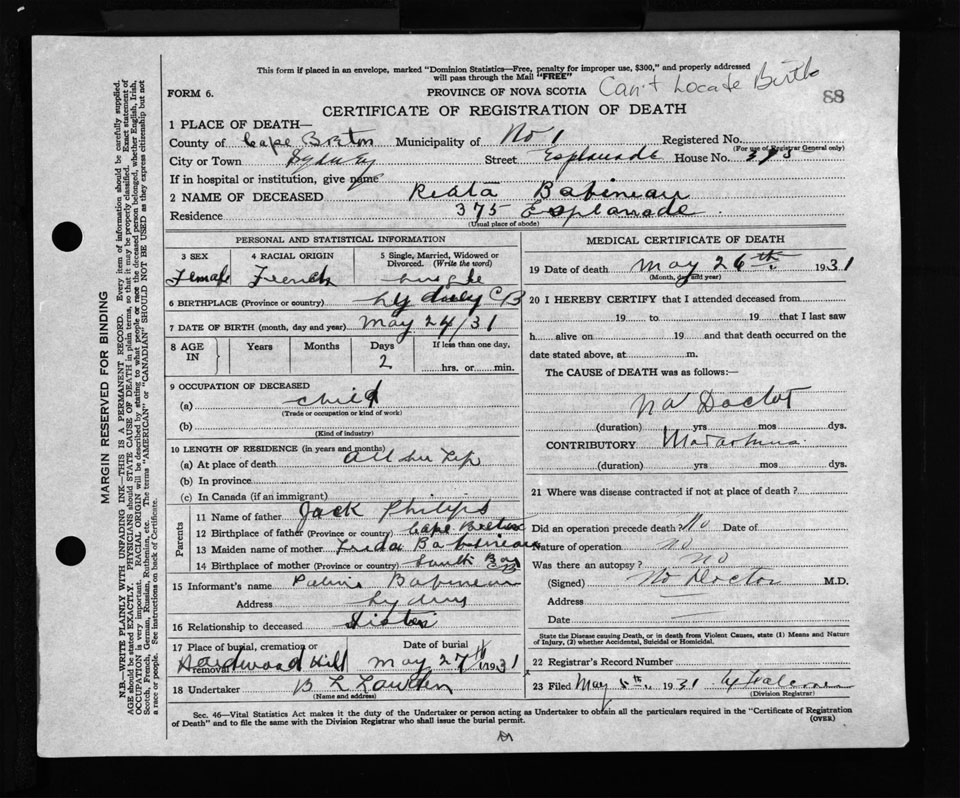 This form if placed in an envelope, marked "Dominion Statistics—Free, penalty for improper use, $300," and properly addressed
will pass through the Mail "FREE"
FORM 6. PROVINCE OF NOVA SCOTIA Can't Locate Birth 88
CERTIFICATE OF REGISTRATION OF DEATH
1 PLACE OF DEATH—
County of Cape Breton Municipality of No 1 Registered No.
(For use of Registrar General only)
City or Town Sydney Street Esplanade House No. 375
If in hospital or institution, give name
2 NAME OF DECEASED Babineau
Residence 375 Esplanade
(Usual place of abode)
PERSONAL AND STATISTICAL INFORMATION
3 SEX 4 RACIAL ORIGIN 5 Single, Married, Widowed or Divorced. (Write the word)
Female French Single
6 BIRTHPLACE (Province or country) Sydney CB
7 DATE OF BIRTH (month, day and year) May 24/31
8 AGE IN Years Months Days If less than one day,
2 hrs. or min.
9 OCCUPATION OF DECEASED
(a) child
(Trade or occupation or kind of work)
(b)
(Kind of industry)
10 LENGTH OF RESIDENCE (in years and months)
(a) At place of death All her Life
(b) In province
(c) In Canada (if an immigrant)
Parents
11 Name of father Jack Philips
12 Birthplace of father (Province or country) Cape Breton
13 Maiden name of mother Babineau
14 Birthplace of mother (Province or country) South Bar CB
15 Informant's name Babineau
Address Sydney
16 Relationship to deceased Sister
17 Place of burial, cremation or removal Date of burial
Hardwood Hill May 27th 1931
18 Undertaker
(Name and address)
MEDICAL CERTIFICATE OF DEATH
19 Date of death May 26th 1931
(Month, day and year)
20 I HEREBY CERTIFY that I attended deceased from
19 to 19 that I last saw
h alive on 19 and that death occurred on the
date stated above, at m.
The CAUSE of DEATH was as follows:—
No Doctor
(duration) yrs mos dys.
CONTRIBUTORY Marasmus
(duration) yrs mos dys.
21 Where was disease contracted if not at place of death?
Did an operation precede death? No Date of
Nature of operation no
Was there an autopsy? no
(Signed) No Doctor M.D.
Address
Date
State the Disease causing Death, or in death from Violent Causes, state (1) Means and Nature of Injury, (2) whether Accidental, Suicidal or Homicidal.
22 Registrar's Record Number
23 Filed May 1931
(Division Registrar)
Sec. 46—Vital Statistics Act makes it the duty of the Undertaker or person acting as Undertaker to obtain all the particulars required in the "Certificate of Registration
of Death" and to file the same with the Division Registrar who shall issue the burial permit. (OVER)
MARGIN RESERVED FOR BINDING
N.B.—WRITE PLAINLY WITH UNFADING INK—THIS IS A PERMANENT RECORD. Every item of information should be carefully supplied.
AGE should be stated EXACTLY. PHYSICIANS should STATE CAUSE OF DEATH in plain terms, so that it may be properly classified. Exact statement of
OCCUPATION is very important. RACIAL ORIGIN will be described by stating to what people or race the deceased person belonged, whether English, Irish,
Scotch, French, German, Russian, Ruthenian, etc. The terms "AMERICAN" or "CANADIAN" SHOULD NOT BE USED as they express citizenship but not
a race or people. See instructions on back of Certificate.